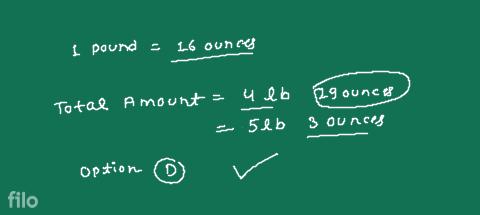 1 pound = 16 ounces
Total Amount = 4 lb 29 ounces
= 5 lb 3 ounces
option D
filo